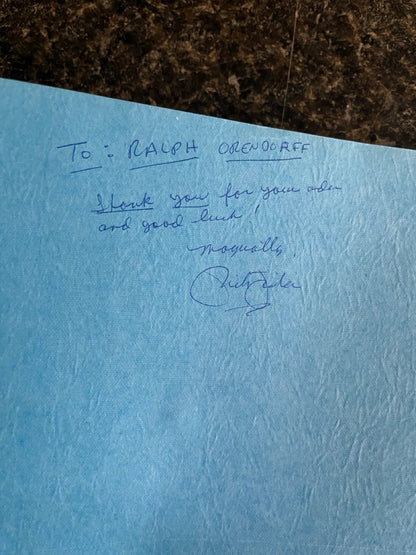 TO: RALPH ORENDORFF
Thank you for your order
and good luck!